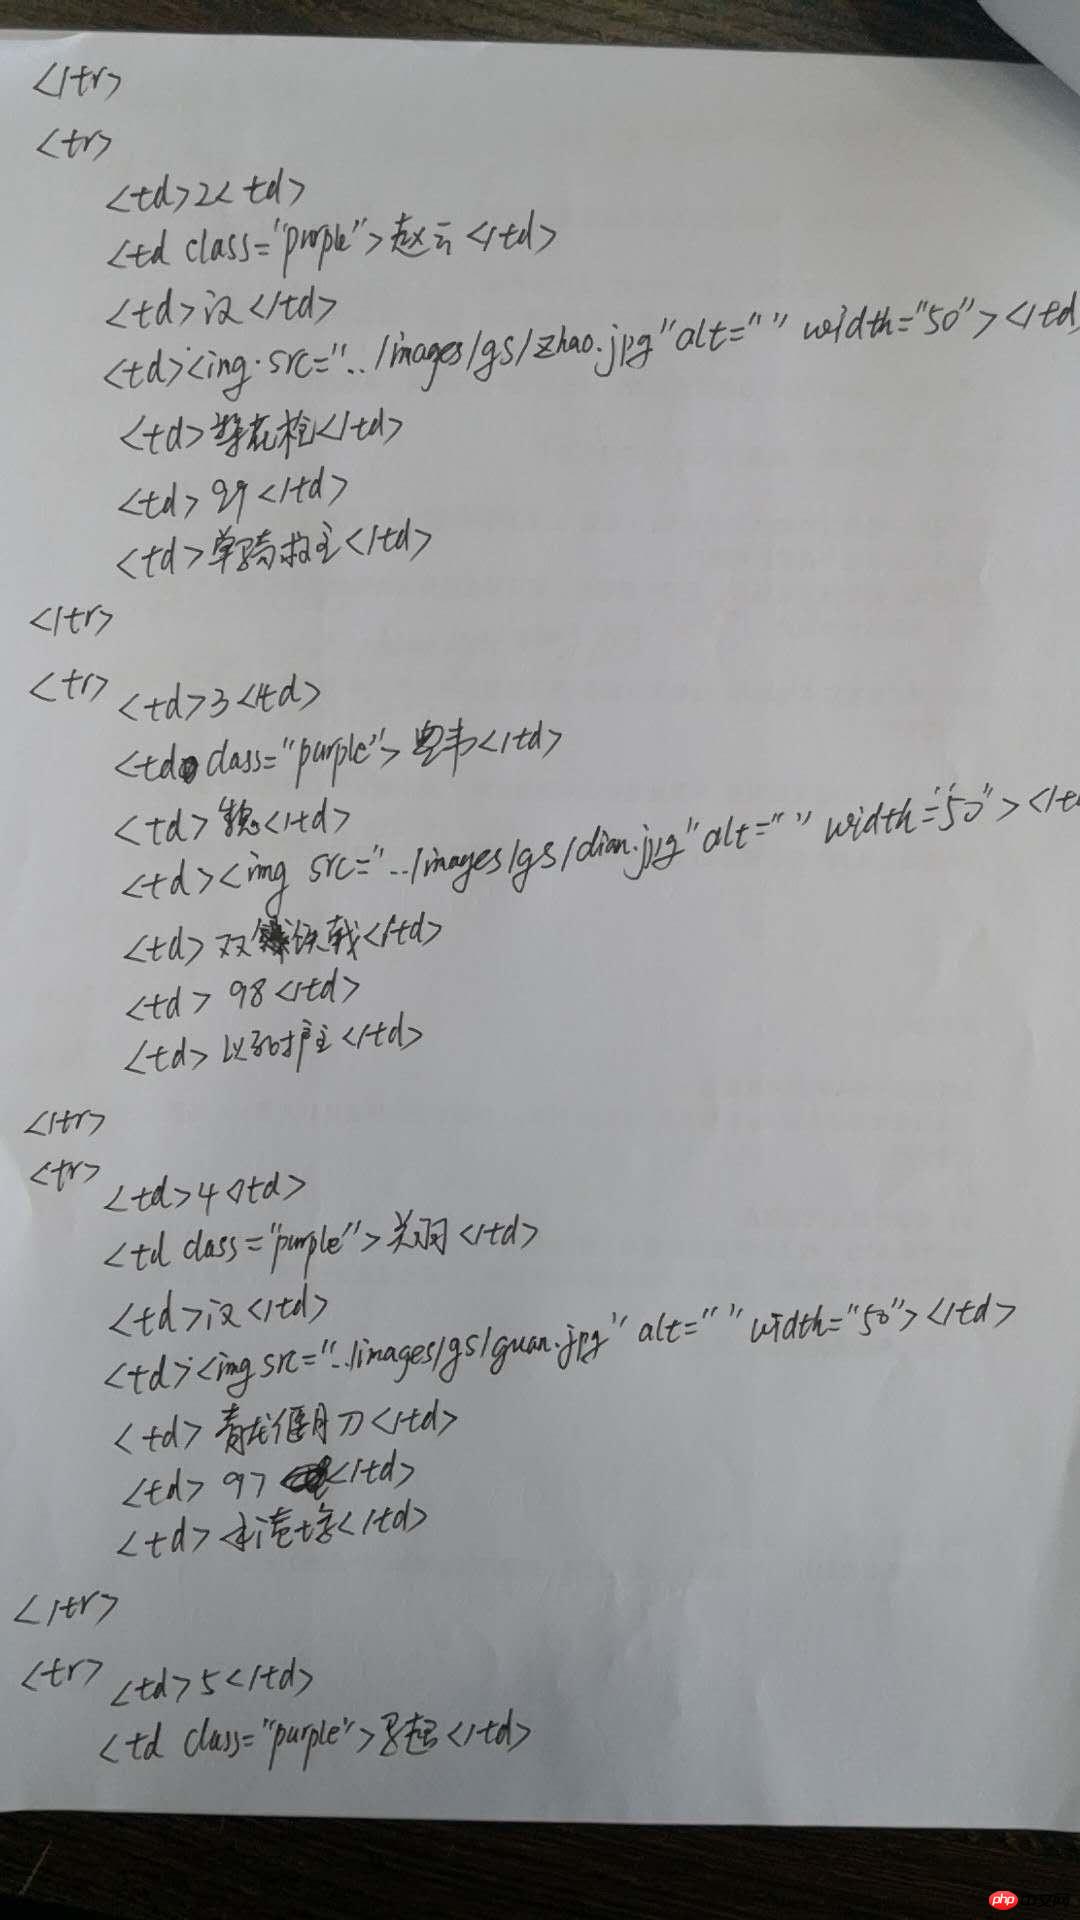 </tr>
<tr>
<td>2<td>
<td class="purple">赵云</td>
<td>汉</td>
<td><img src="../images/gs/zhao.jpg"alt="" width="50"></td
<td>梨花枪</td>
<td>99</td>
<td>单骑救主</td>
</tr>
<tr> <td>3</td>
<td class="purple">典韦</td>
<td>魏</td>
<td><img src="../images/gs/dian.jpg"alt="" width="50"></td
<td>双铁戟</td>
<td>98</td>
<td>以死护主</td>
</tr>
<tr> <td>4</td>
<td class="purple">关羽</td>
<td>汉</td>
<td><img src="../images/gs/guan.jpg" alt="" width="50"></td>
<td>青龙偃月刀</td>
<td>97</td>
<td>水淹七军</td>
</tr>
<tr> <td>5</td>
<td class="purple">马超</td>
php